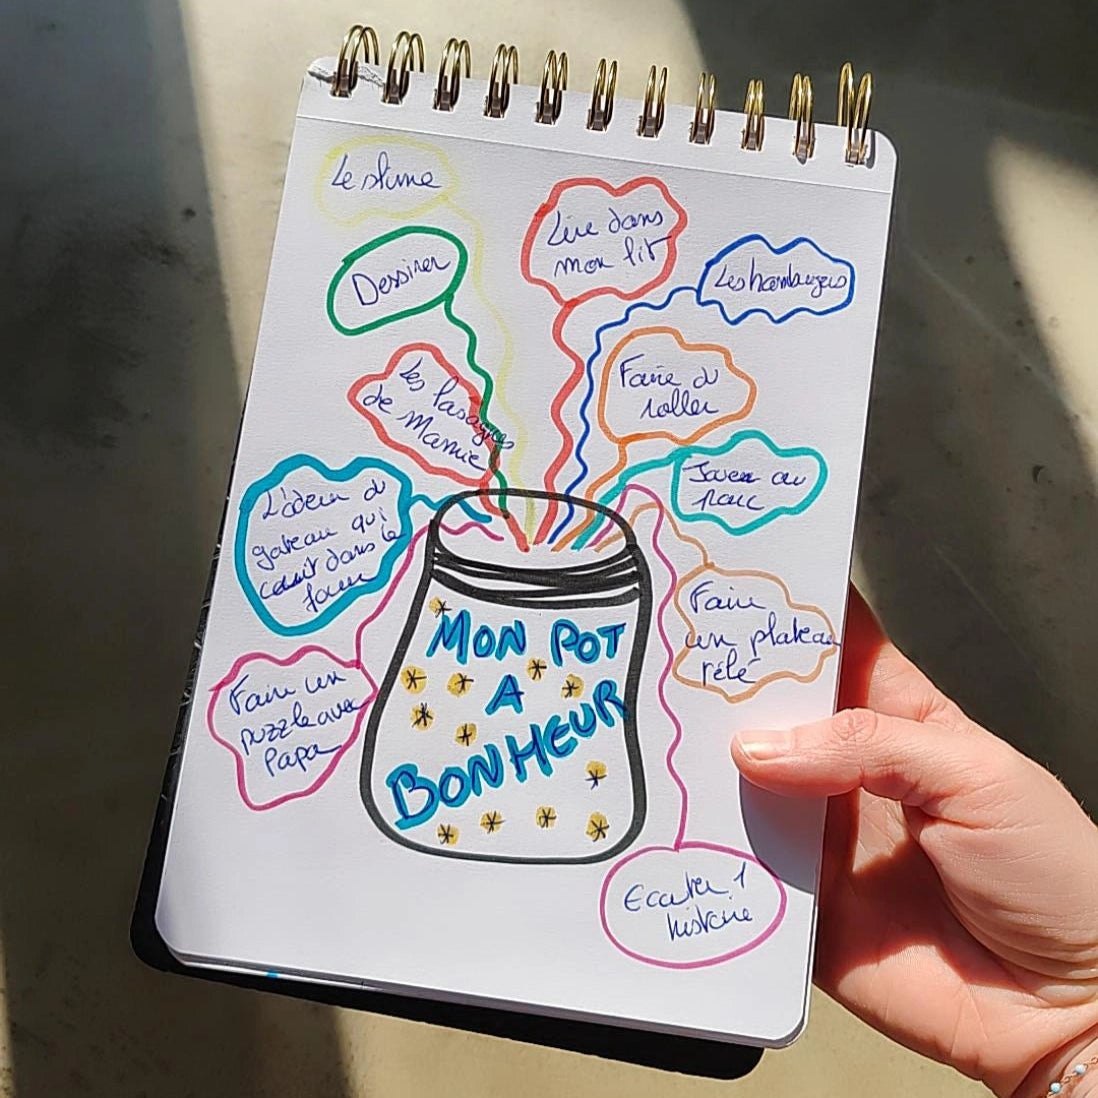 Le slime
Lire dans
mon lit
Dessiner
Les hamburgers
Les lasagnes
de Mamie
Faire du
roller
Jouer au
parc
L'odeur du
gateau qui
cuit dans le
four
Faire un
plateau
télé
Faire un
puzzle avec
Papa
MON POT
A
BONHEUR
Ecouter 1
histoire